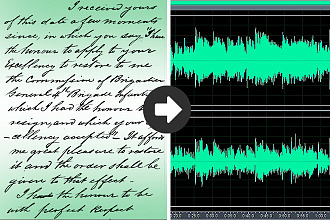 I received yours
of this date a few moments
since, in which you say I have
the honour to apply to your
Excellency to restore to me
the Commission of Brigadier
General 4th Brigade Infantry
which I had the honour to
resign, and which your Ex
-cellency accepted. It affords
me great pleasure to restore
it and the order shall be
given to that effect -
I have the honour to be
with perfect Respect